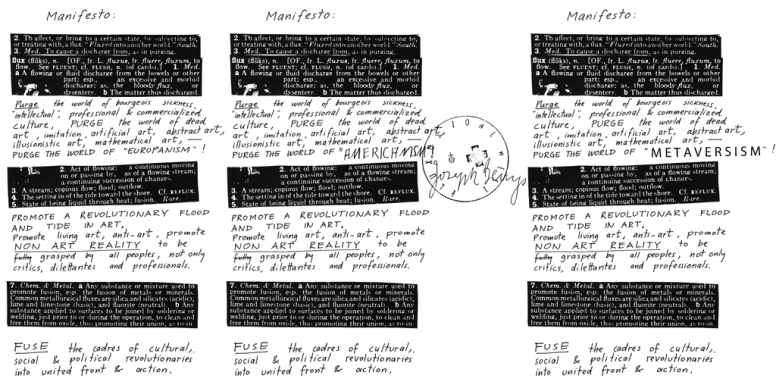 Manifesto:
2. To affect, or bring to a certain state, by subjecting to,
or treating with, a flux. "Fluxed into another world." South.
3. Med. To cause a discharge from, as in purging.
flux (flŭks), n. [OF., fr. L. fluxus, fr. fluere, fluxum, to
flow. See FLUENT; cf. FLUSH, n. (of cards).] 1. Med.
a A flowing or fluid discharge from the bowels or other
part; esp., an excessive and morbid
discharge; as, the bloody flux, or
dysentery. b The matter thus discharged.
Purge the world of bourgeois sickness,
"intellectual", professional & commercialized
culture, PURGE the world of dead
art, imitation, artificial art, abstract art,
illusionistic art, mathematical art, —
PURGE THE WORLD OF "EUROPANISM" !
2. Act of flowing: a continuous moving
on or passing by, as of a flowing stream;
a continuing succession of changes.
3. A stream; copious flow; flood; outflow.
4. The setting in of the tide toward the shore. Cf. REFLUX.
5. State of being liquid through heat; fusion. Rare.
PROMOTE A REVOLUTIONARY FLOOD
AND TIDE IN ART,
Promote living art, anti-art, promote
NON ART REALITY to be
fully grasped by all peoples, not only
critics, dilettantes and professionals.
7. Chem. & Metal. a Any substance or mixture used to
promote fusion, esp. the fusion of metals or minerals.
Common metallurgical fluxes are silica and silicates (acidic),
lime and limestone (basic), and fluorite (neutral). b Any
substance applied to surfaces to be joined by soldering or
welding, just prior to or during the operation, to clean and
free them from oxide, thus promoting their union, as rosin.
FUSE the cadres of cultural,
social & political revolutionaries
into united front & action.
Manifesto:
2. To affect, or bring to a certain state, by subjecting to,
or treating with, a flux. "Fluxed into another world." South.
3. Med. To cause a discharge from, as in purging.
flux (flŭks), n. [OF., fr. L. fluxus, fr. fluere, fluxum, to
flow. See FLUENT; cf. FLUSH, n. (of cards).] 1. Med.
a A flowing or fluid discharge from the bowels or other
part; esp., an excessive and morbid
discharge; as, the bloody flux, or
dysentery. b The matter thus discharged.
Purge the world of bourgeois sickness,
"intellectual", professional & commercialized
culture, PURGE the world of dead
art, imitation, artificial art, abstract art,
illusionistic art, mathematical art, —
PURGE THE WORLD OF "AMERICANISM" !
Joseph Beuys
2. Act of flowing: a continuous moving
on or passing by, as of a flowing stream;
a continuing succession of changes.
3. A stream; copious flow; flood; outflow.
4. The setting in of the tide toward the shore. Cf. REFLUX.
5. State of being liquid through heat; fusion. Rare.
PROMOTE A REVOLUTIONARY FLOOD
AND TIDE IN ART,
Promote living art, anti-art, promote
NON ART REALITY to be
fully grasped by all peoples, not only
critics, dilettantes and professionals.
7. Chem. & Metal. a Any substance or mixture used to
promote fusion, esp. the fusion of metals or minerals.
Common metallurgical fluxes are silica and silicates (acidic),
lime and limestone (basic), and fluorite (neutral). b Any
substance applied to surfaces to be joined by soldering or
welding, just prior to or during the operation, to clean and
free them from oxide, thus promoting their union, as rosin.
FUSE the cadres of cultural,
social & political revolutionaries
into united front & action.
Manifesto:
2. To affect, or bring to a certain state, by subjecting to,
or treating with, a flux. "Fluxed into another world." South.
3. Med. To cause a discharge from, as in purging.
flux (flŭks), n. [OF., fr. L. fluxus, fr. fluere, fluxum, to
flow. See FLUENT; cf. FLUSH, n. (of cards).] 1. Med.
a A flowing or fluid discharge from the bowels or other
part; esp., an excessive and morbid
discharge; as, the bloody flux, or
dysentery. b The matter thus discharged.
Purge the world of bourgeois sickness,
"intellectual", professional & commercialized
culture, PURGE the world of dead
art, imitation, artificial art, abstract art,
illusionistic art, mathematical art, —
PURGE THE WORLD OF "METAVERSISM" !
2. Act of flowing: a continuous moving
on or passing by, as of a flowing stream;
a continuing succession of changes.
3. A stream; copious flow; flood; outflow.
4. The setting in of the tide toward the shore. Cf. REFLUX.
5. State of being liquid through heat; fusion. Rare.
PROMOTE A REVOLUTIONARY FLOOD
AND TIDE IN ART,
Promote living art, anti-art, promote
NON ART REALITY to be
fully grasped by all peoples, not only
critics, dilettantes and professionals.
7. Chem. & Metal. a Any substance or mixture used to
promote fusion, esp. the fusion of metals or minerals.
Common metallurgical fluxes are silica and silicates (acidic),
lime and limestone (basic), and fluorite (neutral). b Any
substance applied to surfaces to be joined by soldering or
welding, just prior to or during the operation, to clean and
free them from oxide, thus promoting their union, as rosin.
FUSE the cadres of cultural,
social & political revolutionaries
into united front & action.